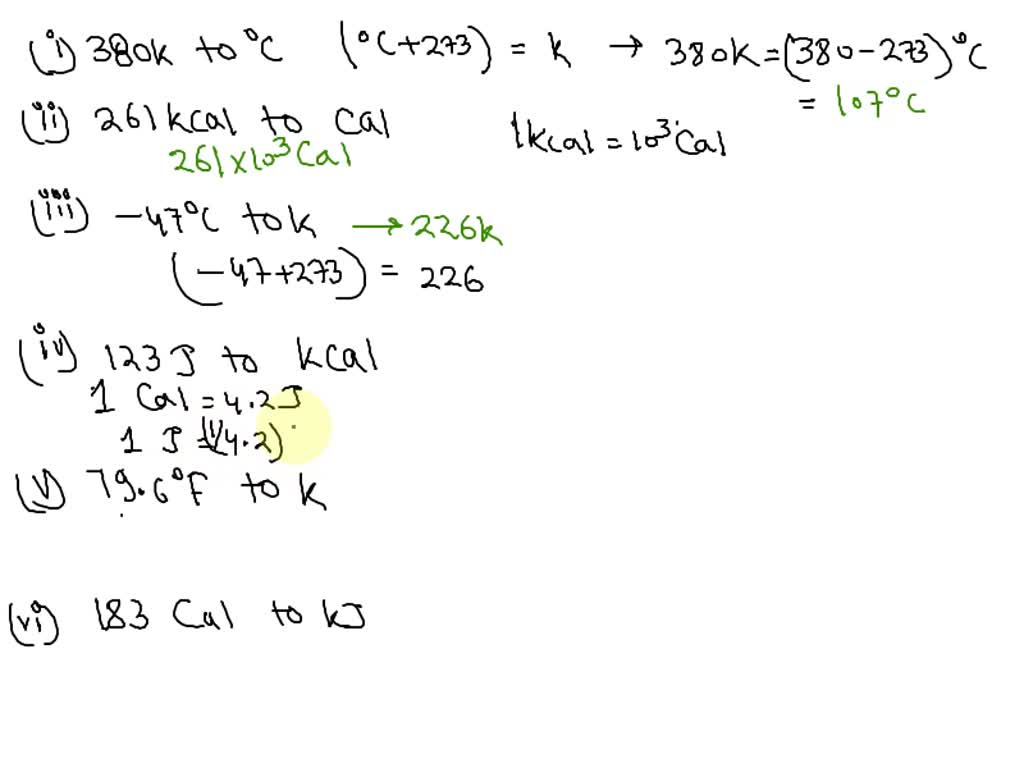 (i) 380k to °C (°C+273) = k → 380k = (380-273)°C
= 107°C
(ii) 261kcal to Cal 1kcal = 10³Cal
261×10³Cal
(iii) -47°C to k → 226k
(-47+273) = 226
(iv) 123J to kcal
1 Cal = 4.2J
1 J = (1/4.2)
(v) 79.6°F to k
(vi) 183 Cal to kJ